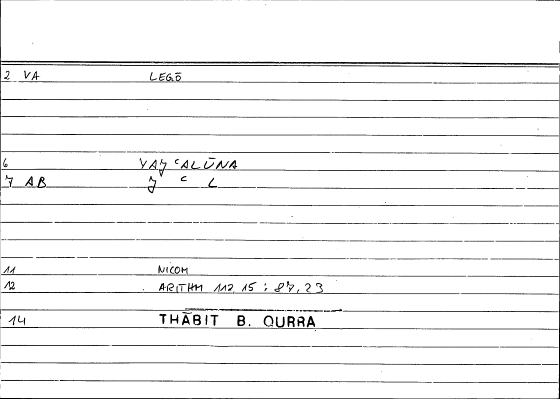 2 VA LEGŌ
6 YAJ ͨALŪNA
7 AB J ͨ L
11 NICOM
12 ARITHM 112,15 : 87,23
14 THĀBIT B. QURRA